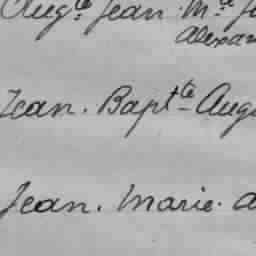 Augte Jean. Mie
Alexan
Jean. Bapte Augu
Jean. Marie. a